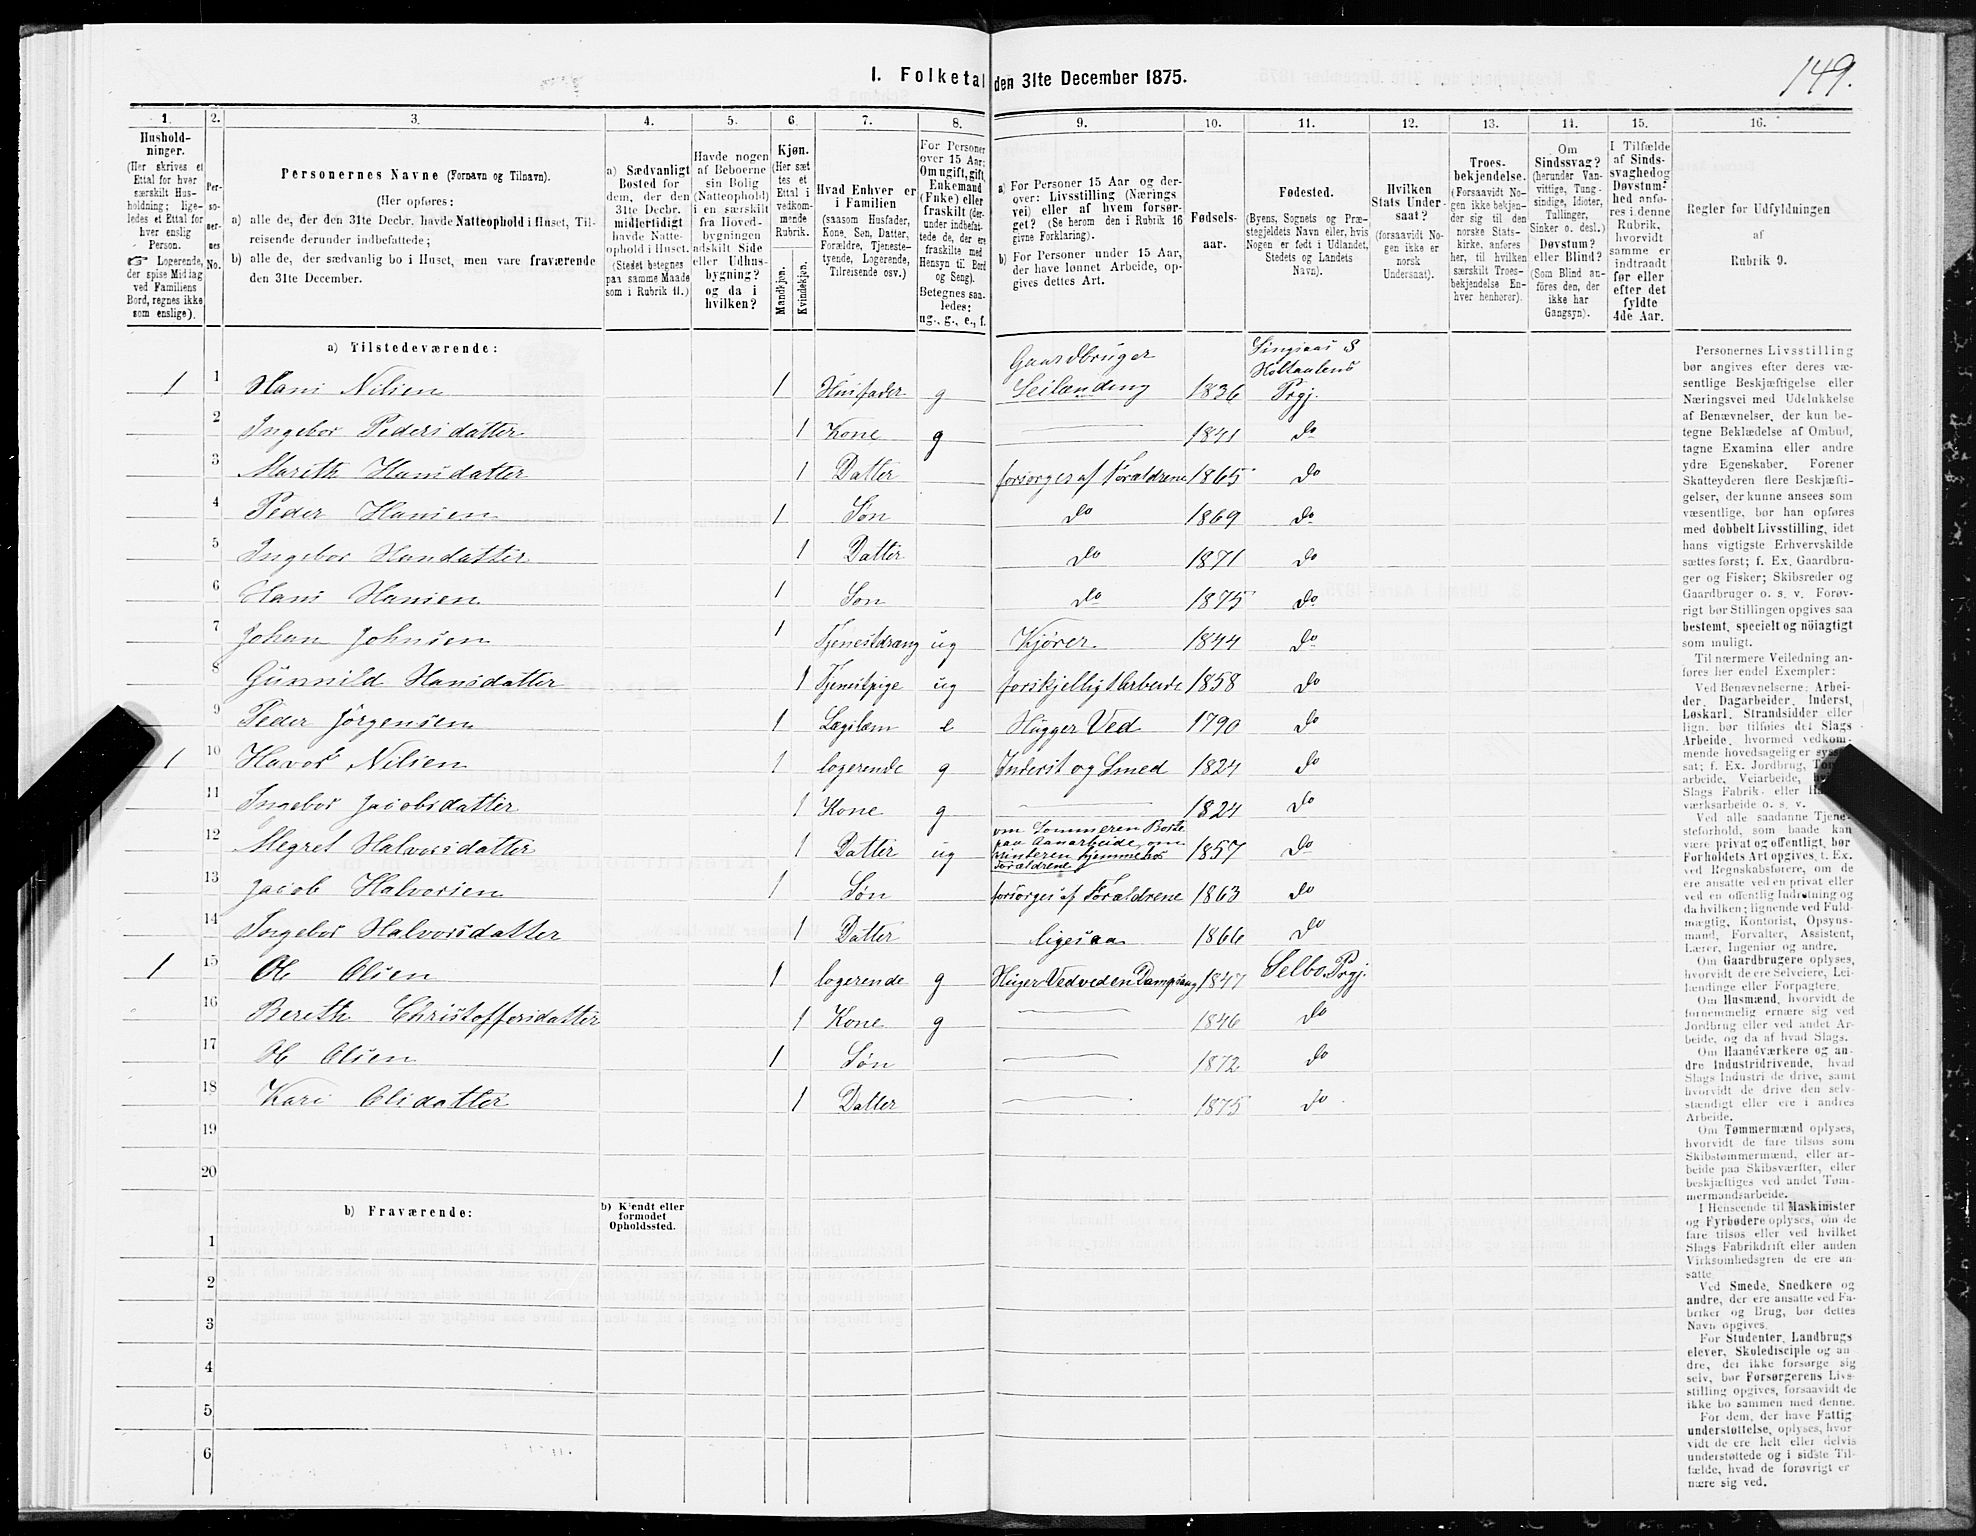 149.
1. Folketal den 31te December 1875.
1. 2. 3. 4. 5. 6. 7. 8. 9. 10. 11. 12. 13. 14. 15. 16.
Hushold-
ninger.
(Her skrives et
Ettal for hver
særskilt Hus-
holdning; lige-
ledes et Ettal for
hver enslig
Person.
☞ Logerende,
der spise Middag
ved Familiens
Bord, regnes ikke
som enslige).
Per-
so-
ner-
nes
No.
Personernes Navne (Fornavn og Tilnavn).
(Her opføres:
a) alle de, der den 31te Decbr. havde Natteophold i Huset, Til-
reisende derunder indbefattede;
b) alle de, der sædvanlig bo i Huset, men vare fraværende
den 31te December.
a) Sædvanligt
Bosted for
dem, der den
31te Decbr.
midlertidigt
havde Natte-
ophold i Huset.
(Stedet betegnes
paa samme Maade
som i Rubrik 11.)
Havde nogen
af Beboerne
sin Bolig
(Natteophold)
i en særskilt
fra Hoved-
bygningen
adskilt Side
eller Udhus-
bygning?
og da i
hvilken?
Kjøn.
(Her sæt
tes et
Ettal i
vedkom-
mende
Rubrik.
Mandkjøn.
Kvindekjøn.
Hvad Enhver er
i Familien
(saasom Husfader,
Kone, Søn, Datter,
Forældre, Tjeneste-
tyende, Logerende,
Tilreisende osv.)
For Personer
over 15 Aar:
Om ugift, gift,
Enkemand
(Enke) eller
fraskilt (der-
under indbefat-
tede de, der ere
fraskilte med
Hensyn til Bord
og Seng).
Betegnes saa-
ledes:
ug., g., e., f.
a) For Personer 15 Aar og der-
over: Livsstilling (Nærings
vei) eller af hvem forsør-
get? (Se herom den i Rubrik 16
givne Forklaring).
b) For Personer under 15 Aar,
der have lønnet Arbeide, op-
gives dettes Art.
Fødsels-
aar.
Fødested.
(Byens, Sognets og Præ-
stegjeldets Navn eller, hvis
Nogen er født i Udlandet,
Stedets og Landets
Navn).
Hvilken
Stats Under-
saat?
(forsaavidt No-
gen ikke er
norsk
Undersaat).
Troes-
bekjendelse.
(Forsaavidt No-
gen ikke bekjen-
der sig til den
norske Stats-
kirke, anføres
her, til hvilken
særskilt Troes-
bekjendelse En-
hver henhører).
Om
Sindssvag?
(herunder Van-
vittige, Tung-
sindige, Idioter,
Tullinger,
Sinker o. desl.)
Døvstum?
eller Blind?
(Som Blind an-
føres den, der
ikke har
Gangsyn).
I Tilfælde
af Sinds-
svaghed og
Døvstum-
hed anfø-
res i denne
Rubrik,
hvorvidt
samme er
indtraadt
før eller
efter det
fyldte
4de Aar.
Regler for Udfyldningen
af
Rubrik 9.
a) Tilstedeværende:
1 1 Hans Nilsen 1 Husfader g Gaardbruger Leilænding 1836 Singsaas S Holtaalens Prgj.
2 Ingebor Pedersdatter 1 Kone g 1841 do
3 Marith Hansdatter 1 Datter forsørges af Forældrene 1865 do
4 Peder Hansen 1 Søn do 1869 do
5 Ingebor Hansdatter 1 Datter do 1871 do
6 Hans Hansen 1 Søn do 1875 do
7 Johan Johnsen 1 Tjenestdrang ug Kjører 1844 do
8 Gunnild Hansdatter 1 Tjenestpige ug forskjelligt Arbeide 1858 do
9 Peder Jörgensen 1 Lægslem e Hugger Ved 1790 do
1 10 Havor Nilsen 1 logerende g Inderst og Smed 1824 do
11 Ingebor Jacobsdatter 1 Kone g 1824 do
12 Megret Halvorsdatter 1 Datter ug om Sommeren Borte paa Aanarbeide, om vinteren hjemme hos Forældrene 1857 do
13 Jacob Halvorsen 1 Søn forsørges af Forældrene 1863 do
14 Ingebor Halvorsdatter 1 Datter ligesaa 1866 do
1 15 Ole Olsen 1 logerende g Huger Ved ved en Dampsaug 1847 Selbo Prgj.
16 Bereth Christoffersdatter 1 Kone g 1846 do
17 Ole Olsen 1 Søn 1872 do
18 Kari Olsdatter 1 Datter 1875 do
19
20
b) Fraværende:
b) Kjendt eller
formodet
Opholdssted.
1
2
3
4
5
6
Personernes Livsstilling
bør angives efter deres væ-
sentlige Beskjæftigelse eller
Næringsvei med Udelukkelse
af Benævnelser, der kun be-
tegne Beklædelse af Ombud,
tagne Examina eller andre
ydre Egenskaber. Forener
Skatteyderen flere Beskjæfti-
gelser, der kunne ansees som
væsentlige, bør han opføres
med dobbelt Livsstilling, idet
hans vigtigste Erhvervskilde
sættes først; f. Ex. Gaardbru-
ger og Fisker; Skibsreder og
Gaardbruger o. s. v. Forøv-
rigt bør Stillingen opgives saa
bestemt, specielt og nöiagtigt
som muligt.
Til nærmere Veiledning an-
føres her endel Exempler:
Ved Benævnelserne: Arbei-
der, Dagarbeider, Inderst,
Løskarl, Strandsidder eller
lign. bør tilføies det Slags
Arbeide, hvormed vedkom-
mende hovedsagelig er syssel-
sat; f. Ex. Jordbrug,
arbeide, Veiarbeide,
Slags Fabrik- eller
værksarbeide o. s. v.
Ved alle saadanne Tjene-
steforhold, som baade kan
være privat og offentligt, bør
Forholdets Art opgives, f. Ex.
ved Regnskabsførere, om de
ere ansatte ved en privat eller
ved en offentlig Indretning og
da hvilken; lignende ved Fuld-
mægtig, Kontorist, Opsyns-
mand, Forvalter, Assistent,
Lærer, Ingeniør og andre.
Om Gaardbrugere oplyses,
hvorvidt de ere Selveiere, Lei-
lændinge eller Forpagtere.
Om Husmænd, hvorvidt de
fornemmelig ernære sig ved
Jordbrug eller ved andet Ar-
beide, og da af hvad Slags.
Om Haandværkere og an-
dre Industridrivende, hvad
Slags Industri de drive, samt
hvorvidt de drive den selv-
stændigt eller ere i andres
Arbeide.
Om Tømmermænd oplyses,
hvorvidt de fare tilsøs som
Skibstømmermænd, eller ar-
beide paa Skibsværfter, eller
beskjæftiges ved andet Tøm-
mermandsarbeide.
I Henseende til Maskinister
og Fyrbødere oplyses, om de
fare tilsøs eller ved hvilket
Slags Fabrikdrift eller anden
Virksomhedsgren de ere an-
satte.
Ved Smede, Snedkere og
andre, der ere ansatte ved Fa-
briker og Brug, bør dettes
Navn opgives.
For Studenter, Landbrugs
elever, Skoledisciple og an
dre, der ikke forsørge sig
selv, bør Forsørgerens Livs-
stilling opgives, forsaavidt de
ikke bo sammen med denne.
For dem, der have Fattig
understøttelse, oplyses, hvor
vidt de ere helt eller delvis
understøttede og i sidste Til-
fælde, hvad de forøvrigt er
nære sig ved.